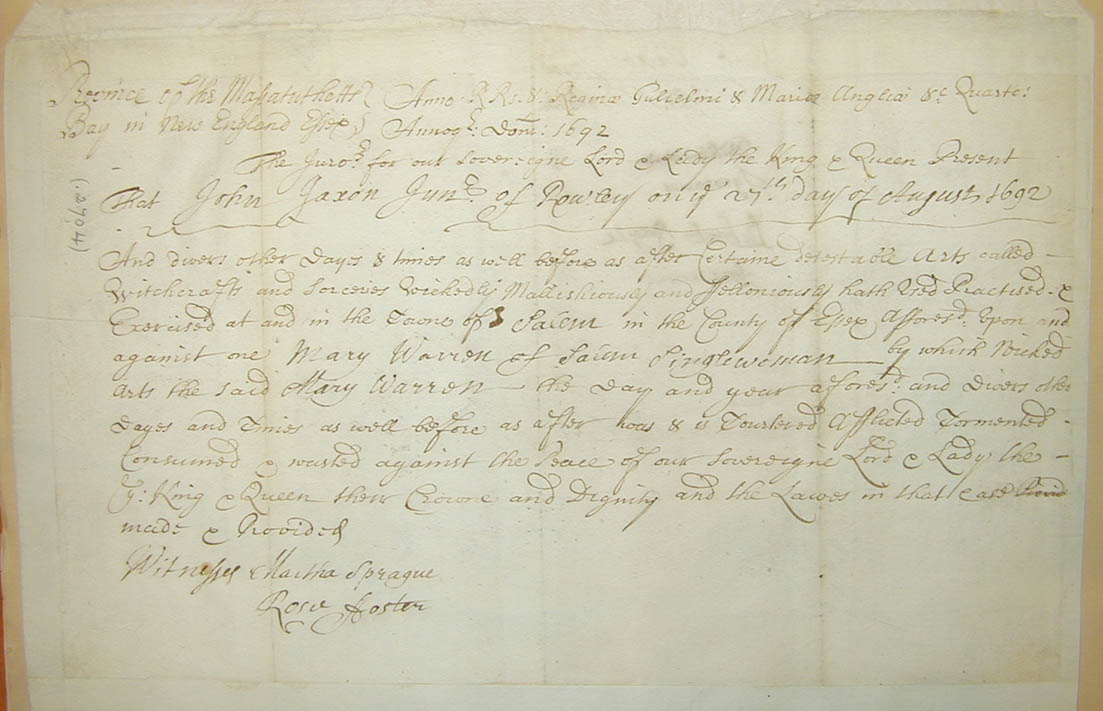 Province of the Massatuthetts Anno R Rs. & Reginæ Gulielmi & Mariæ Angliæ &c Quarto:
Bay in New England Essex Annoqe Dom: 1692
The Juros. for our Sovereigne Lord & Lady the King & Queen Present
That John Jaxon Junr. of Rowley on ye 27th. day of August 1692
And divers other Dayes & times as well before as after Certaine detestable Arts called
Witchcrafts and Sorceres Wickedly Mallishiously and ffelloniously hath Vsed Practised &
Exercised at and in the Towne of Salem in the County of Essex Afforesd. Vpon and
against one Mary Warren of Salem Singlewoman by which Wicked
Arts the said Mary Warren the Day and year afforesd. and Divers other
Dayes and Times as well before as after was & is Tourtered Afflicted Tormented
Consumed & wasted against the Peace of our Sovereigne Lord & Lady the
y: King & Queen their Crowne and Dignity and the Lawes in that case
made & Provided
Witnesses Martha Sprague
Rose ffoster
(2704.)